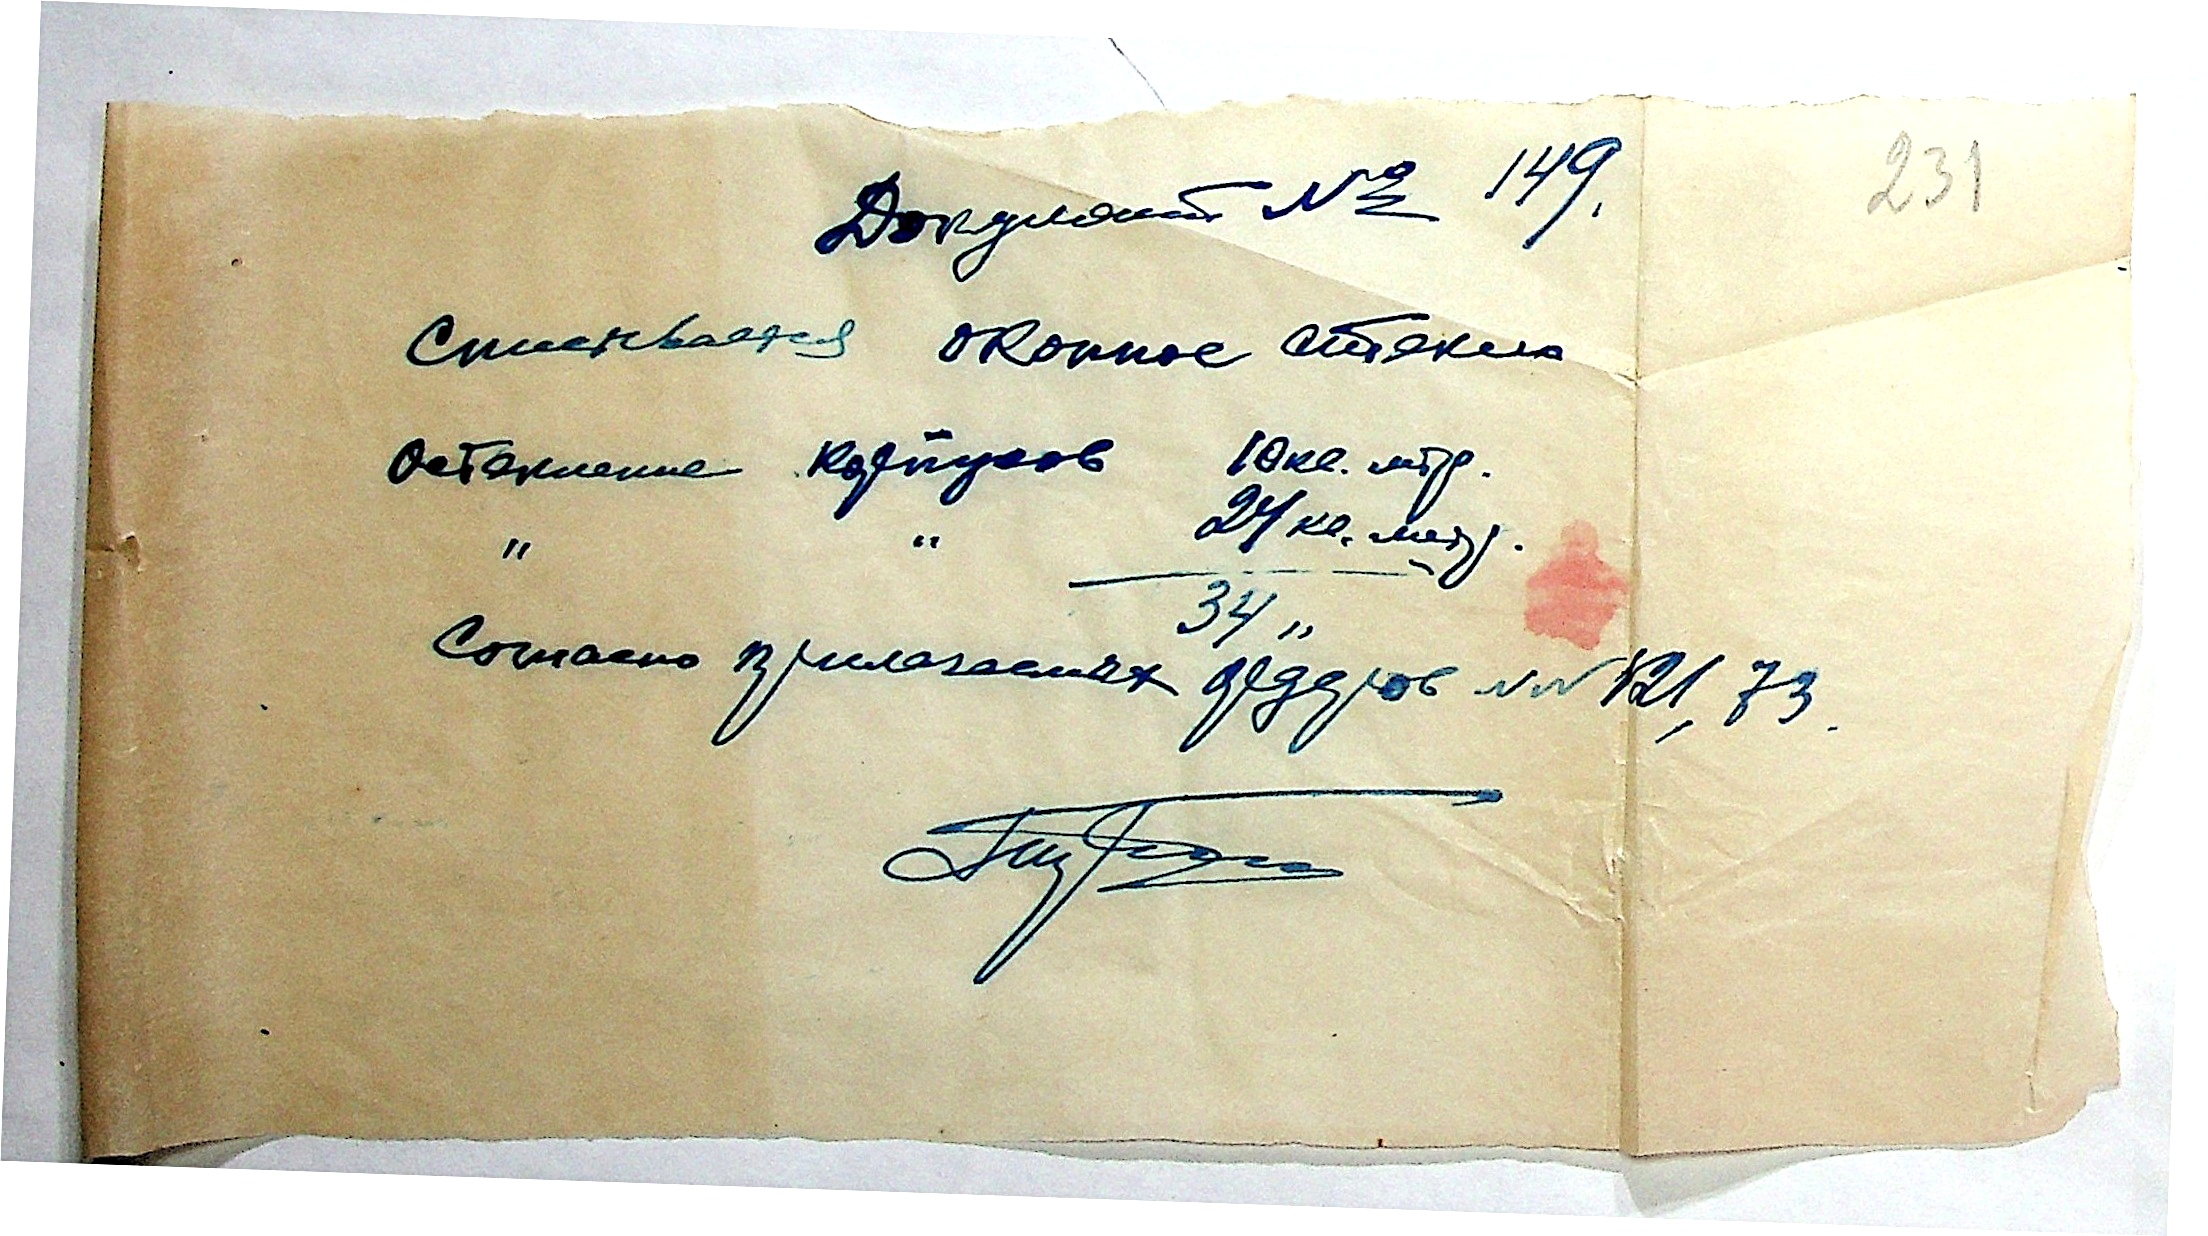 231
Документ № 149.
Списывается оконное стекло
Остекление корпусов 10 кв. мтр.
" " 24 кв. метр.
34 "
Согласно прилагаемых ордеров №№ 121, 73.